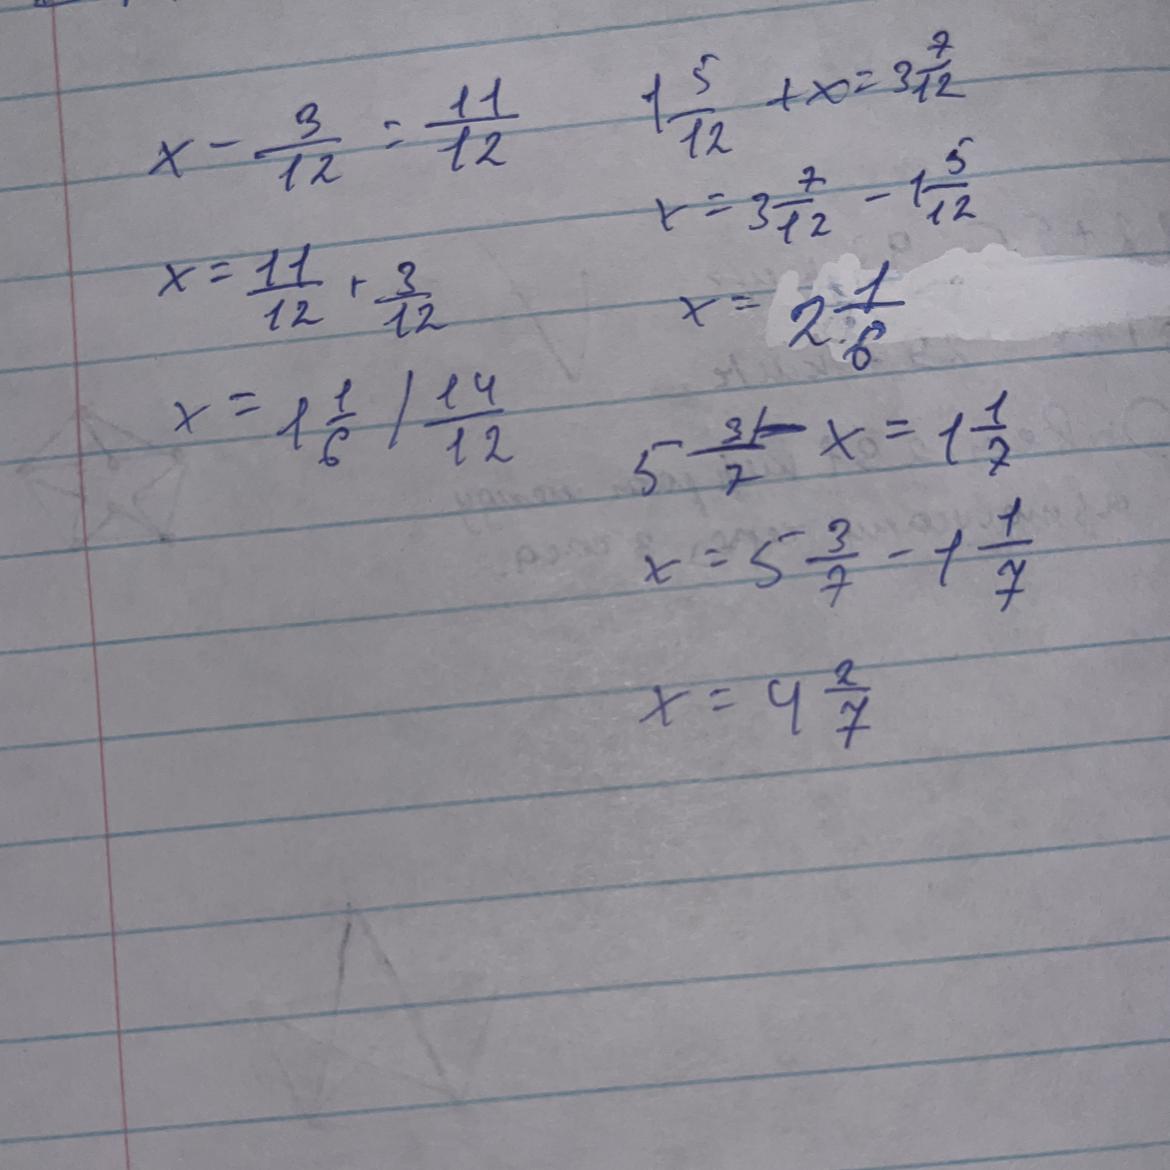 x - 3/12 = 11/12
x = 11/12 + 3/12
x = 1 1/6 / 14/12
1 5/12 + x = 3 7/12
x = 3 7/12 - 1 5/12
x = 2 1/6
5 3/7 - x = 1 1/7
x = 5 3/7 - 1 1/7
x = 4 2/7